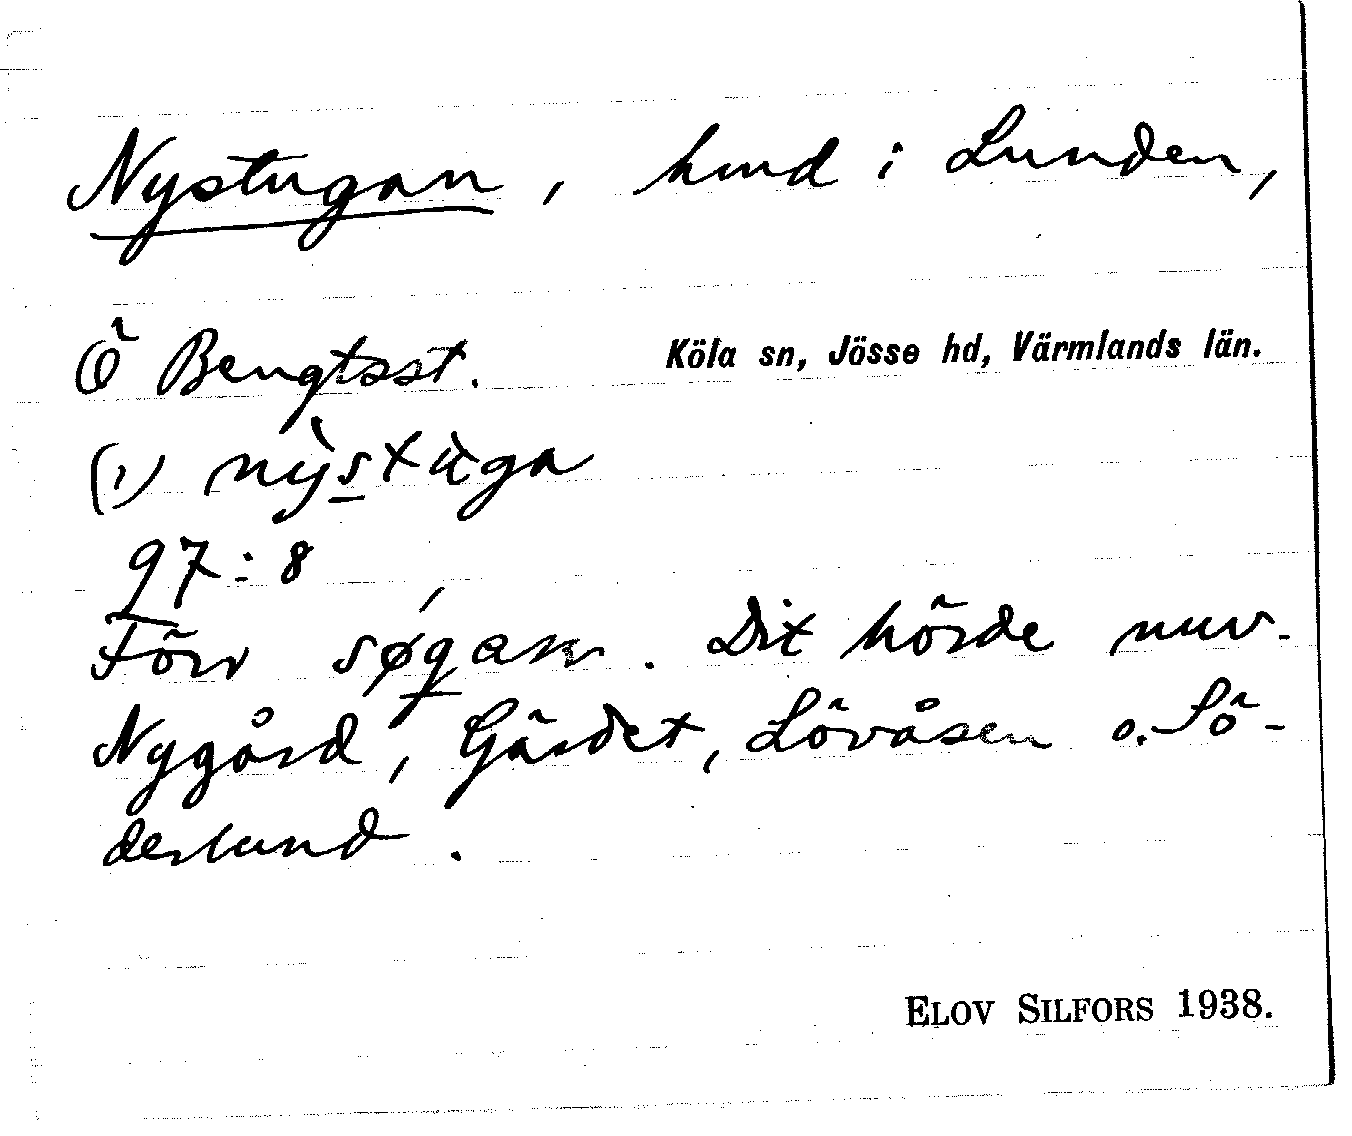 Nystugan, hmd i Lunden,
Ö Bengtsst. Köla sn, Jösse hd, Värmlands län.
(1) nỳstùga
97:8
Förv søgarn. Dit hörde nuv.
Nygård, Gärdet, Lövåsen o. Sö-
derlund.
ELOV SILFORS 1938.